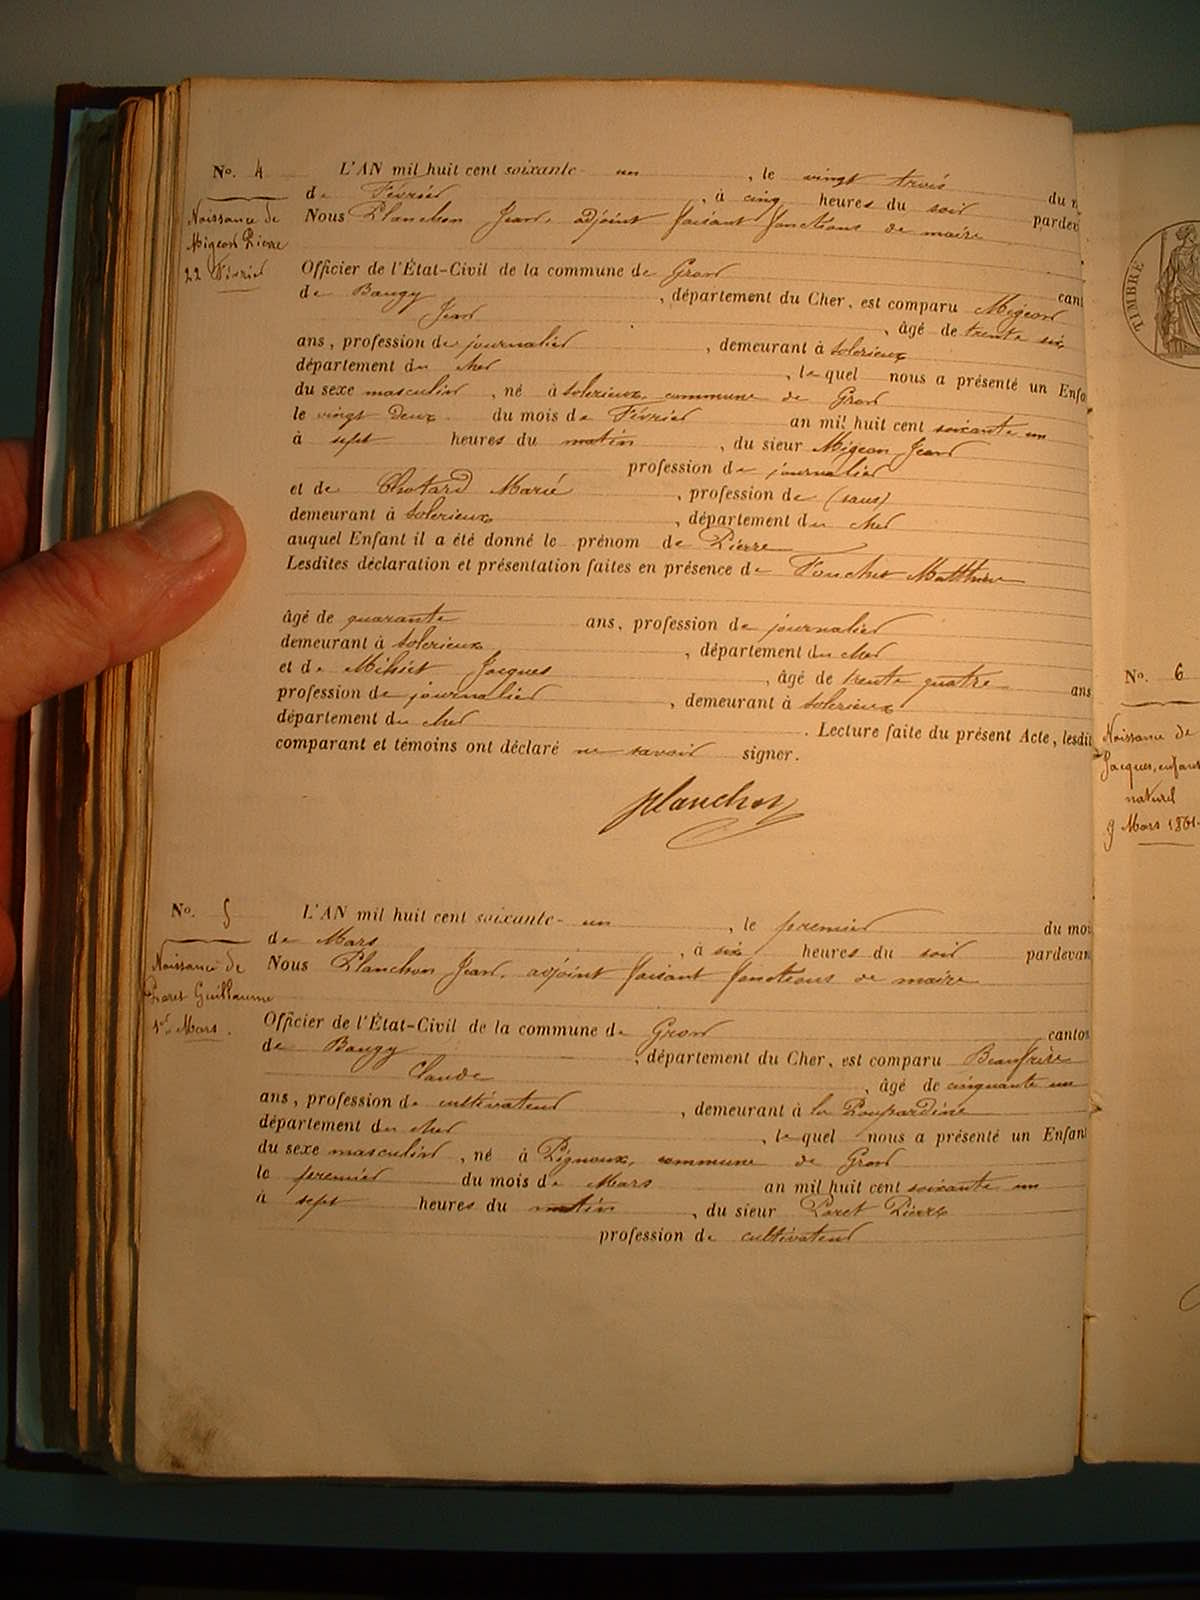 No. 4
Naissance de
Migeon Pierre
22 Février
L'AN mil huit cent soixante un , le vingt trois du m
de Février , à cinq heures du soir pardev
Nous Planchon Jean, adjoint faisant fonctions de maire
Officier de l'État-Civil de la commune de Gron cant
de Baugy , département du Cher, est comparu Migeon
Jean , âgé de trente six
ans, profession de journalier , demeurant à Solerieux
département du Cher , lequel nous a présenté un Enfa
du sexe masculin , né à Solerieux, commune de Gron
le vingt deux du mois de Février an mil huit cent soixante un
à sept heures du matin , du sieur Migeon Jean
profession de journalier
et de Chotard Marie , profession de (sans)
demeurant à Solerieux , département du Cher
auquel Enfant il a été donné le prénom de Pierre
Lesdites déclaration et présentation faites en présence de Foucher Matthieu
âgé de quarante ans, profession de journalier
demeurant à Solerieux , département du Cher
et de Jacques , âgé de trente quatre ans
profession de journalier , demeurant à Solerieux
département du Cher . Lecture faite du présent Acte, lesdit
comparant et témoins ont déclaré ne savoir signer.
Planchon
No. 5
Naissance de
Poret Guillaume
1er Mars.
L'AN mil huit cent soixante- un , le premier du moi
de Mars , à six heures du soir pardevan
Nous Planchon Jean, adjoint faisant fonctions de maire
Officier de l'État-Civil de la commune de Gron canton
de Baugy , département du Cher, est comparu Beaufrère
Claude , âgé de cinquante un
ans, profession de cultivateur , demeurant à la Poupardine
département du Cher , lequel nous a présenté un Enfant
du sexe masculin , né à Pignoux, commune de Gron
le premier du mois de Mars an mil huit cent soixante un
à sept heures du matin , du sieur Poret Pierre
profession de cultivateur
TIMBRE
No. 6
Naissance de
Jacques, enfant
naturel
9 Mars 1861.